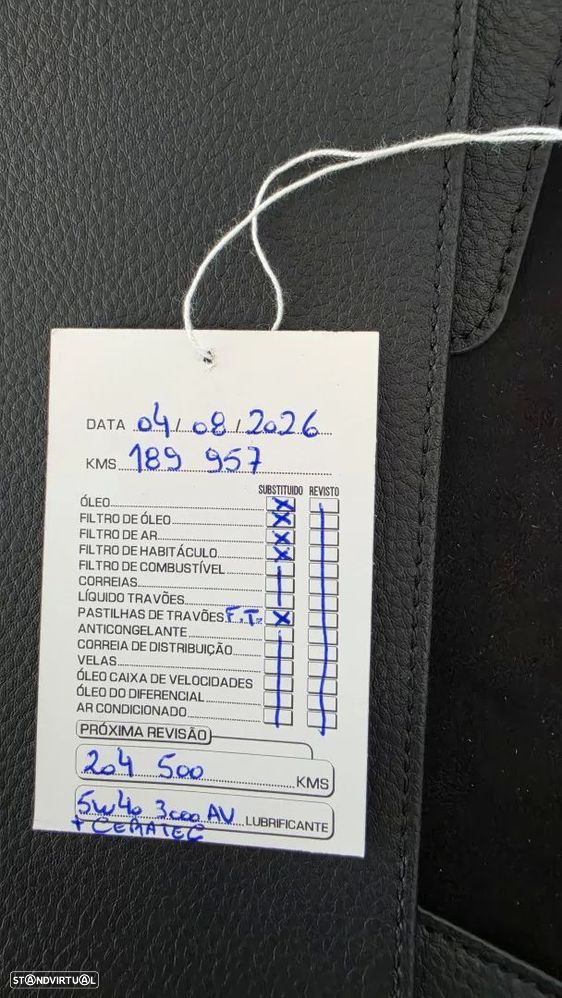 DATA 04/08/2026
KMS 189 957
SUBSTITUIDO REVISTO
ÓLEO X
FILTRO DE ÓLEO X
FILTRO DE AR X
FILTRO DE HABITÁCULO X
FILTRO DE COMBUSTÍVEL
CORREIAS
LÍQUIDO TRAVÕES
PASTILHAS DE TRAVÕES F.T. X
ANTICONGELANTE
CORREIA DE DISTRIBUIÇÃO
VELAS
ÓLEO CAIXA DE VELOCIDADES
ÓLEO DO DIFERENCIAL
AR CONDICIONADO
PRÓXIMA REVISÃO
204 500 KMS
5W40 3000 AV LUBRIFICANTE
+ CERATEC
STANDVIRTUAL